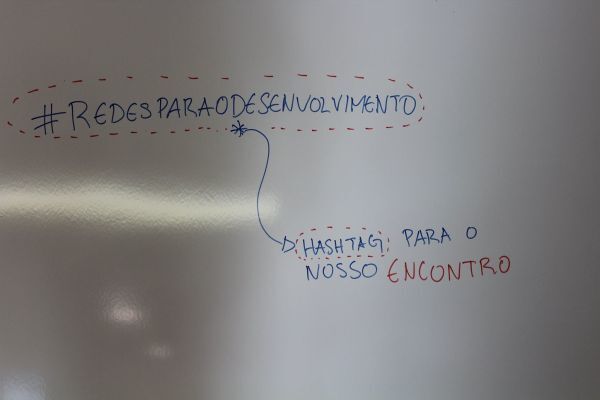 #REDESPARAODESENVOLVIMENTO
* HASHTAG PARA O
NOSSO ENCONTRO